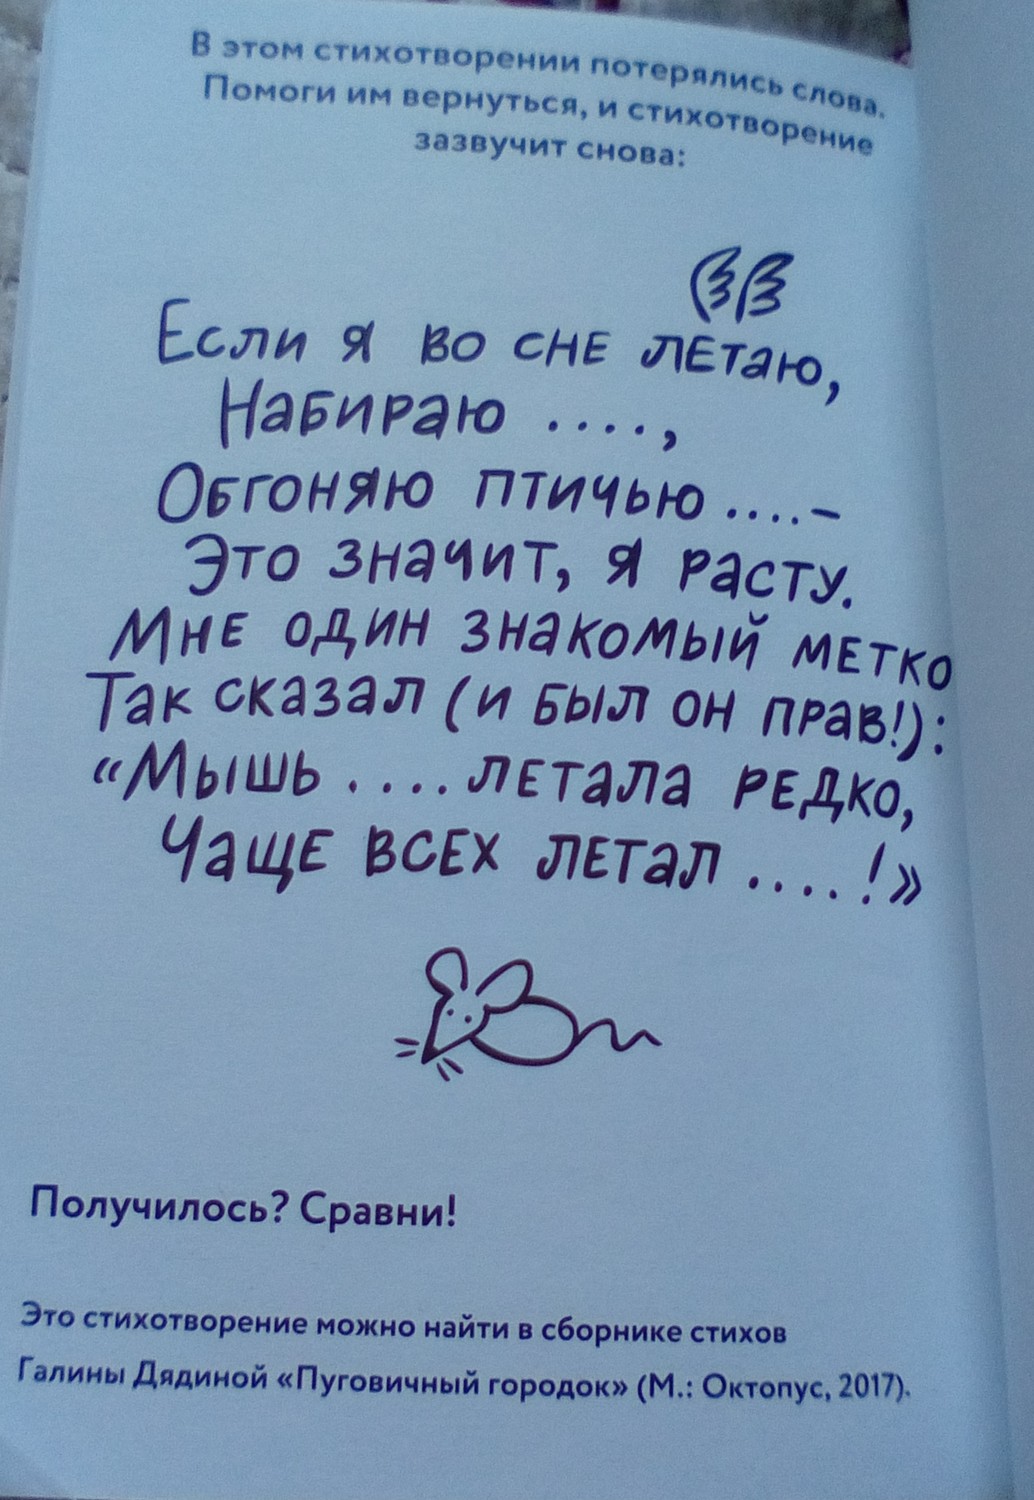 В этом стихотворении потерялись слова.
Помоги им вернуться, и стихотворение
зазвучит снова:
Если я во сне летаю,
Набираю ....,
Обгоняю птичью ....–
Это значит, я расту.
Мне один знакомый метко
Так сказал (и был он прав!):
«Мышь ....летала редко,
Чаще всех летал ....!»
Получилось? Сравни!
Это стихотворение можно найти в сборнике стихов
Галины Дядиной «Пуговичный городок» (М.: Октопус, 2017).